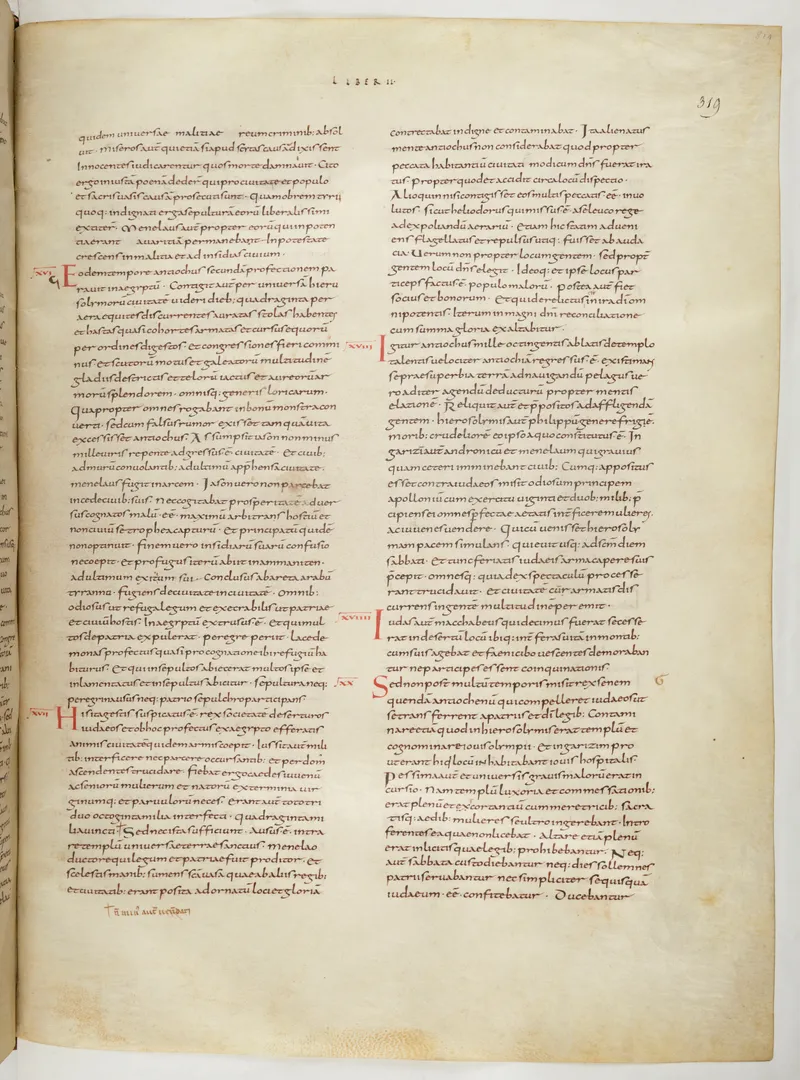 LIBER II
319
quidem uniuersae malitiae reum criminib; absol
uit · miseros aut̄ qui etiā si apud scȳtas causā dixissent
Innocentes iudicarentur quos morte damnauit · Cito
ergo iniustā poenā dedert̄ qui pro ciuitate et populo
et sacris uasis causā prosecuti sunt · Quamobrem tyrii
quoq; indignati erga sepulturā eorū liberalissimi
extitert̄ · Menelaus aut̄ propter eorū qui in poten
tia erant auaritiā permanebat · In potestate
crescens in malitia et ad insidias ciuium ·
XVI
Eodem tempore antiochus secundā profectionem pa
rauit in aegyptū · Contigit aut̄ per uniuersā hieru
solymorū ciuitatē uideri dieb; quadraginta per
aera equites discurrentes auratas stolas habentes
et hastas quasi cohortes armatas et cursus equorū
per ordines digestos · et congressiones fieri comminus
nus et scutorū motus et galeatorū multitudinē
gladiis destrictis et telorū iactus et aureorū ar
morū splendorem · omnisq; generis loricarum ·
Quapropter omnes rogabant in bonū monstra con
uerti · sed cum falsus rumor exisset tamquā uita
excessisset antiochus · Assumptis iason non minus
mille uiris repente adgressus · ē · ciuitatē · Et ciuib;
ad murū conuolantib; ad ultimū app̄hensa ciuitate ·
menelaus fugit in arcem · Iason uero non parcebat
in cede ciuib; suis · Nec cogitabat prosperitatē aduer
sus cognatos malū · ēē · maximū arbitrans hostiū et
non ciuiū se trophea capturū · Et principatū quidē
non optinuit · finem uero insidiarū suarū confusio
nē coepit · et profugus iterū abiit in ammaniten ·
ad ultimum exitium sui · Conclusus ab areta arabū
tyranno · fugiens de ciuitate in ciuitatē · Omnib;
odiosus ut refuga legum et execrabilis ut patriae
et ciuiū hostis · In aegyptū extrusus · ē · et qui mul
tos de patria expulerat · peregre periit · Lacede
monas profectus quasi pro cognatione ibi refugiū ha
biturus · Et qui insepultos abiecerat multos ipse et
inlamentatus et insepultus abicitur · sepultura neq;
peregrina usus neq; patrio sepulchro participans
XVII
His itaq gestis suspicatus · ē · rex societatē deserturos
iudaeos et ob hoc profectus ex aegypto efferatis
animis ciuitatē quidem armis coepit · Iussit aut̄ mili
tib; interficere nec parcere occursantib; et per dom
ascendentes trucidare · fiebat ergo caedes iuuenū
ac seniorū mulierum et natorū exterminia uir
ginumq; et paruulorū neces · Erant aut̄ toto tri
duo octoginta milia interfecti · quadraginta mi
lia uincti · Sed nec ista sufficiunt · Ausus · ē · intra
re templū uniuersa terra sanctius · menelao
ductore qui legum et patriae fuit proditor · et
scelestis manib; sumens scā uasa quae ab aliis regib;
et ciuitatib; erant posita ad ornatū loci et gloriā
contrectabat indigne et contaminabat · Ita alienatus
mente antiochus non considerabat quod propter
peccata habitantiū ciuitatē modicum dn̄s fuerat ira
tus · propter quod et accidit circa locū dispectio ·
Alioquin nisi contigisset eos multis peccatis · ēē · inuo
lutos · sicut heliodorus qui missus · ē · a seleuco rege
ad expoliandū aerariū · Etiam hic statim adueni
ens flagellatus et repulsus utiq; fuisset ab auda
cia · Uerum non propter locum gentem · sed propt̄
gentem locū dn̄s elegit · Ideoq; et ipse locus par
ticeps factus · ē · populo malorū · postea aut̄ fiet
socius et bonorum · Et qui derelictus in ira dī om
nipotentis · Iterum in magni dn̄i reconciliatione
cum summa gloria exaltabitur ·
XVIII
Igitur antiochus mille octingentis ablatis de templo
talentis uelociter antiochiā regressus · ē · existimans
se prae superbia terrā ad nauigandū pelagus ue
ro ad iter agendū deducturū propter mentis
elatione · Reliquit aut̄ et p̄positos ad affligendā
gentem · hierosolymis aut̄ philippū genere frigiē ·
morib; crudeliorē eo ipso a quo constitutus · ē · In
garizi aut̄ andronicū et menelaum qui grauius
quam ceteri imminebant ciuib; Cumq; appositus
esset contra iudaeos misit odiosum principem
apollonium cum exercitu uiginti et duob; milib; p̄
cipiens ei omnes p̄fectae aetatis int̄ficere mulieres ·
ac iuuenes uendere · Qui cū uenisset hierosoly
mam pacem simulans · quieuit usq; ad scm̄ diem
sabbati · Et tunc feriatis iudaeis arma capere suis
p̄cepit · omnesq; qui ad expectaculū processe
rant trucidauit · et ciuitatē cū armatis dis
currens ingentē multitudinē peremit ·
XVIIII
Iudas aut̄ macchabeus qui decimus fuerat secesse
rat in desertū locū ibiq; int̄ feras uitā in montib;
cum suis agebat et faeni cibo uescentes demoraban
tur ne participes essent coinquinationis
XX
Sed non post multū temporis misit rex senem
quendā antiochenū qui compelleret iudaeos ut
se transferrent a patriis et dī legib; Contami
nare etiā quod in hierosolymis erat templū et
cognominare iouis olympii · Et in garizim pro
ut erant hi qui locū inhabitabant iouis hospitalis ·
Pessima aut̄ et uniuersis grauis malorū erat in
cursio · Nam templū luxoria et comessationib;
erat plenū et scortantiū cum meretricib; sacra
tisq; aedib; mulieres se ultro ingerebant · Intro
ferentes ea quae non licebat · Altare etiā plenū
erat inlicitis quae legib; prohibebantur · Neq;
aut̄ sabbata custodiebantur neq; dies sollemnes
patrii seruabantur nec simpliciter se quisquā
iudaeum · ēē · confitebatur · Ducebantur